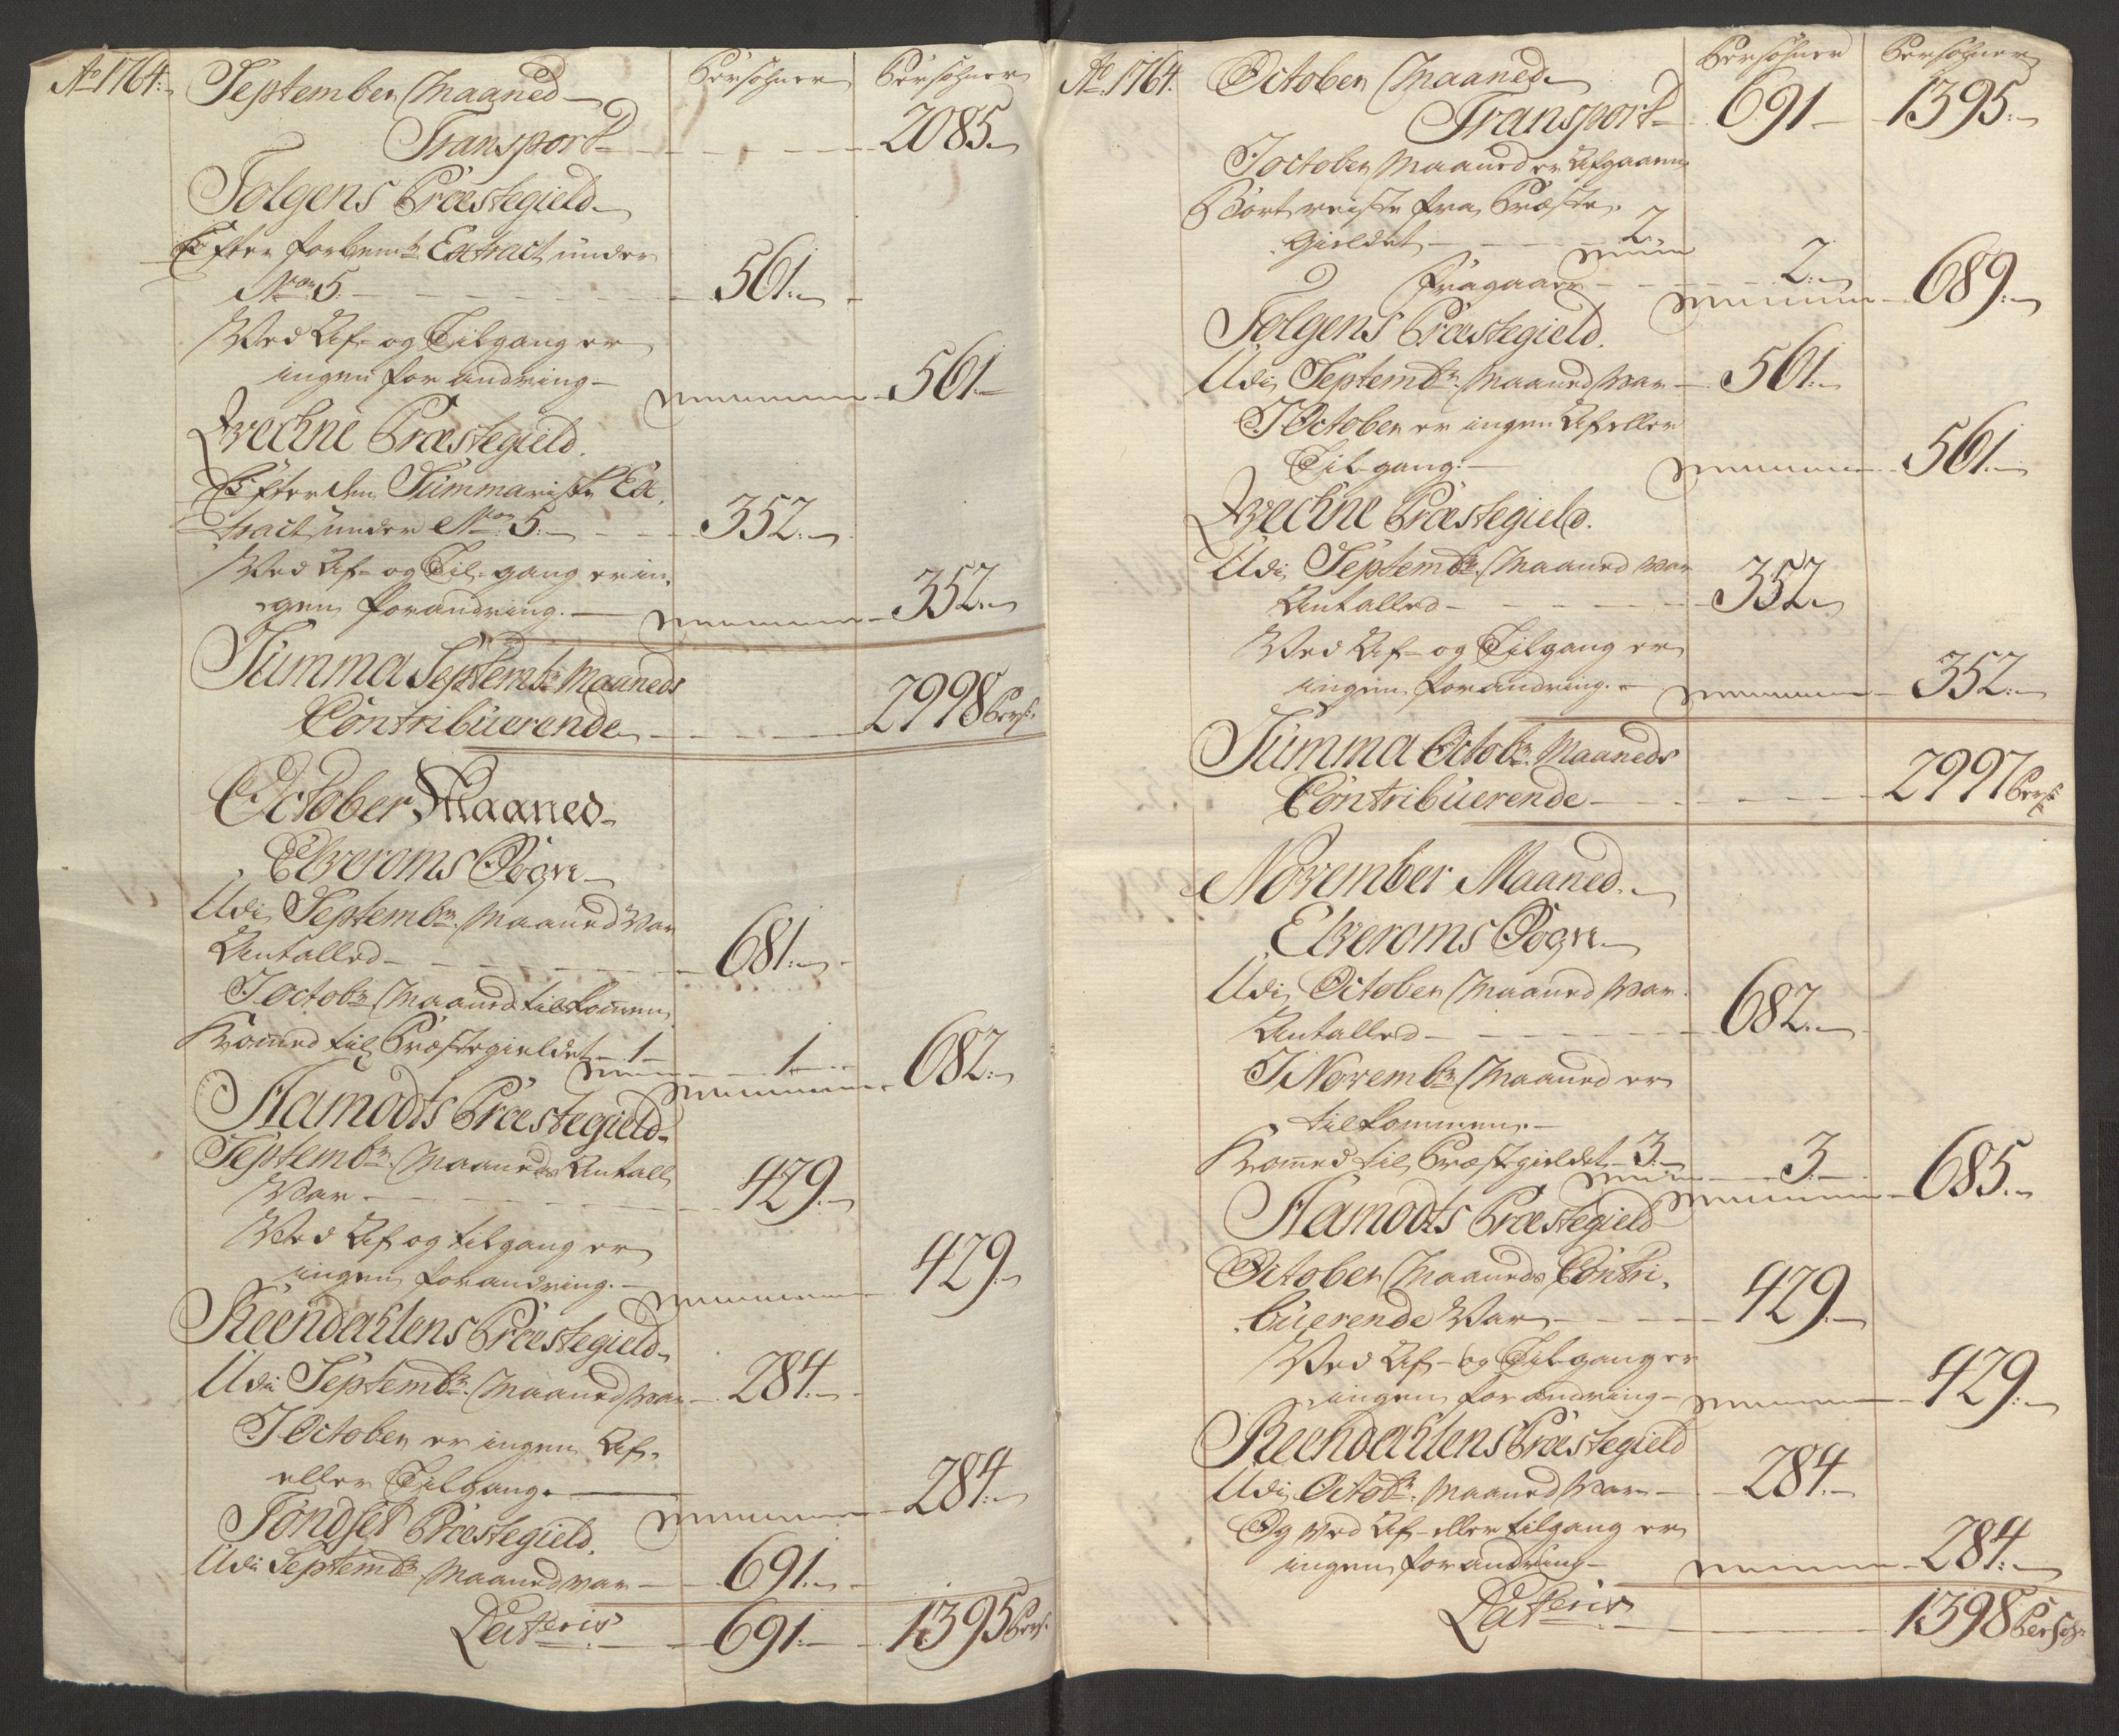 Ao 1764. September Maaned Persohner Persohner
Transport 2085.
Tolgens Præstegield
Efter forbemte Extract under
Nro 5. 561.
Ved Af- og Tilgang er
ingen forandring 561.
Qvechne Præstegield.
Efter den Summariske Ex-
tract under Nro 5. 352.
Ved Af- og Til-gang er in-
gen forandring. 352.
Summa Septembr Maaneds
Contribuerende 2998 Pers:
October Maaned
Elveroms Sogn
Udi Septembr Maaned var
Antalled 681.
I octobr Maaned tilkommen
Kommed til Præstegieldet 1 1 682.
Aamodts Præstegield
Septembr Maaneds Antall
var 429.
Ved Af og tilgang er
ingen forandring. 429.
Reendahlens Præstegield
Udi Septembr Maaned var 284.
I October er ingen Af-
eller Tilgang. 284.
Tøndset Præstegield.
Udi Septembr Maaned var 691.
Lateris 691. 1395 Pers:
Ao 1764. October Maaned Persohner Persohner
Transport 691 1395.
I october Maaned er Afgaaen
Bort reiste fra Præste-
gieldet 2.
Fragaaer 2. 689.
Tolgens Præstegield.
Udi Septembr Maaned var 561.
I October er ingen Af eller
Til-gang. 561.
Qvechne Præstegield.
Udi Septembr Maaned var
Antalled 352.
Ved Af- og Tilgang er
ingen forandring. 352.
Summa Octobr Maaneds
Contribuerende 2997 Pers:
November Maaned
Elveroms Sogn
Udi October Maaned var
Antalled 682.
I Novembr Maaned er
tilkommen.
Kommed til Præstegieldet 3. 3. 685.
Aamodts Præstegield
October Maaneds Contri-
buerende var 429.
Ved Af- og Tilgang er
ingen forandring 429.
Reendahlens Præstegield
Udi Octobr Maaned var 284.
Og ved Af- eller tilgang er
ingen forandring 284.
Lateris 1398 Persohr